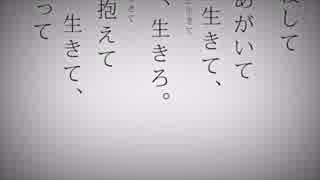 して
あがいて
生きて、
生きて
、生きろ。
きて
抱えて
生きて、
って